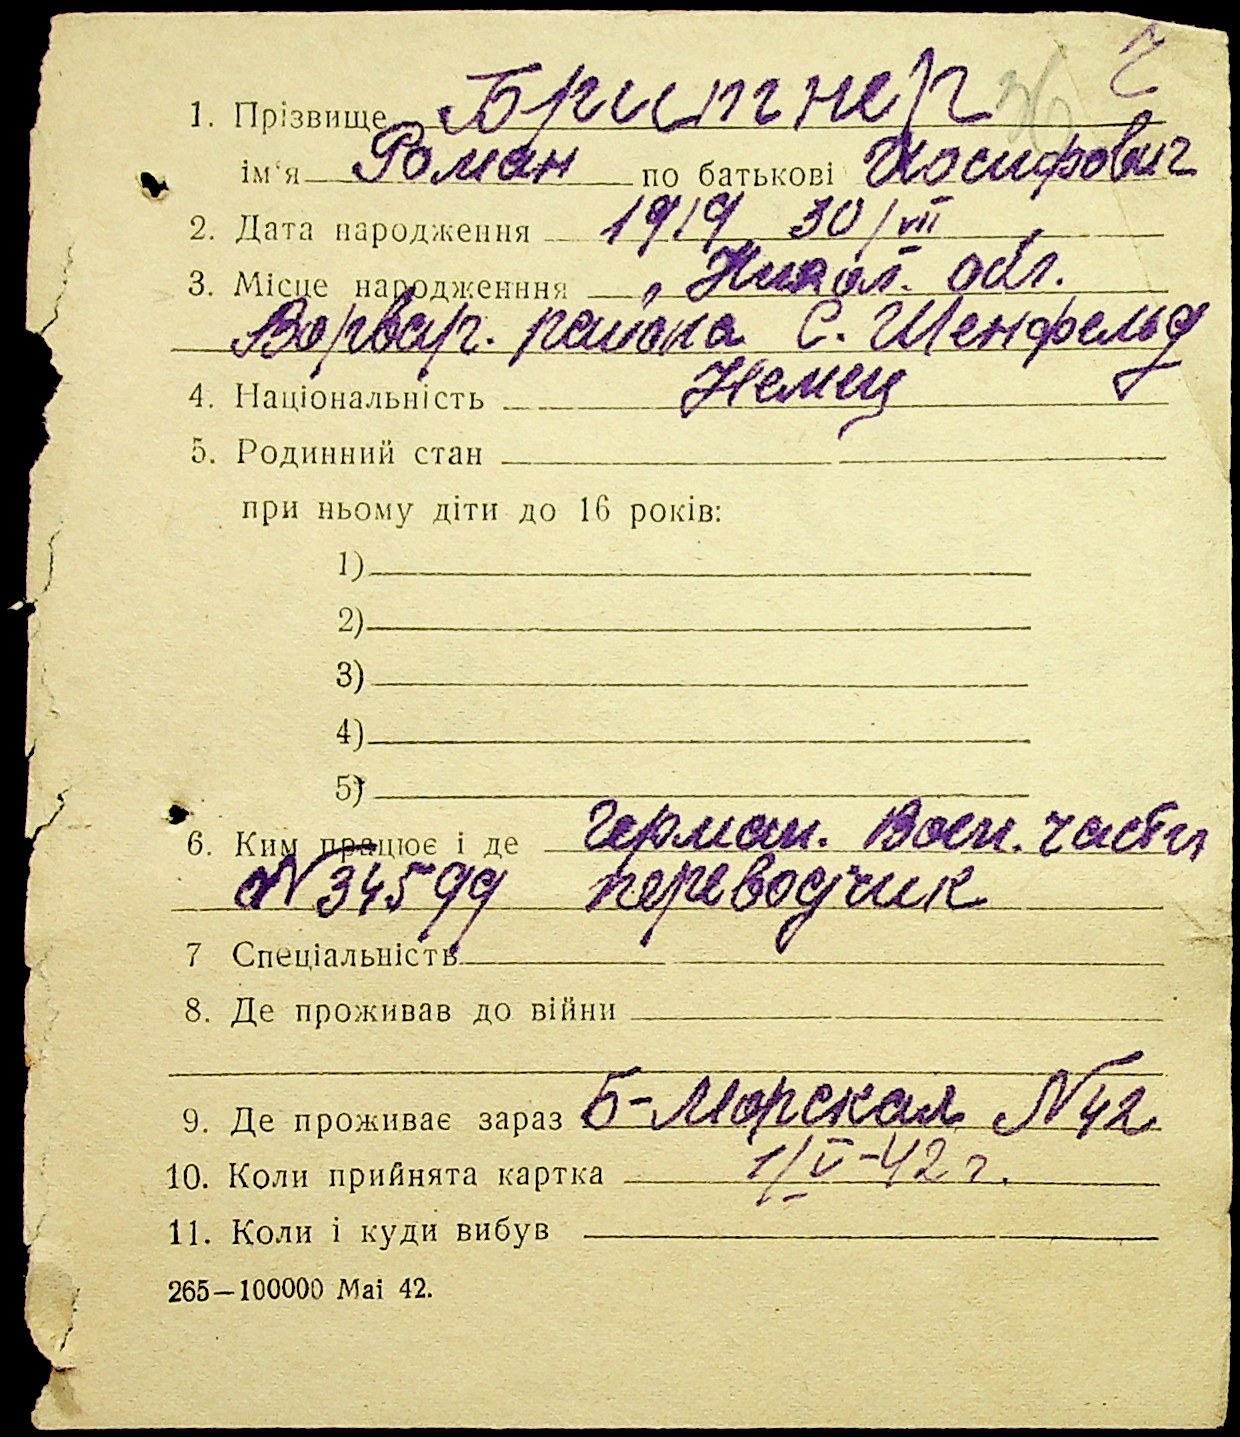 1. Прізвище Бриттнер
ім'я Роман по батькові Иосифович
2. Дата народження 1919 30/VII
3. Місце народженння Никол. обл.
Ворвар. района С. Шенфельд
4. Національність Немец
5. Родинний стан
при ньому діти до 16 років:
1)
2)
3)
4)
5)
6. Ким працює і де Герман. Воен. части
№34599 переводчик
7 Спеціальність
8. Де проживав до війни
9. Де проживає зараз Б-Морская №42
10. Коли прийнята картка 1/V-42 г.
11. Коли і куди вибув
265—100000 Маі 42.